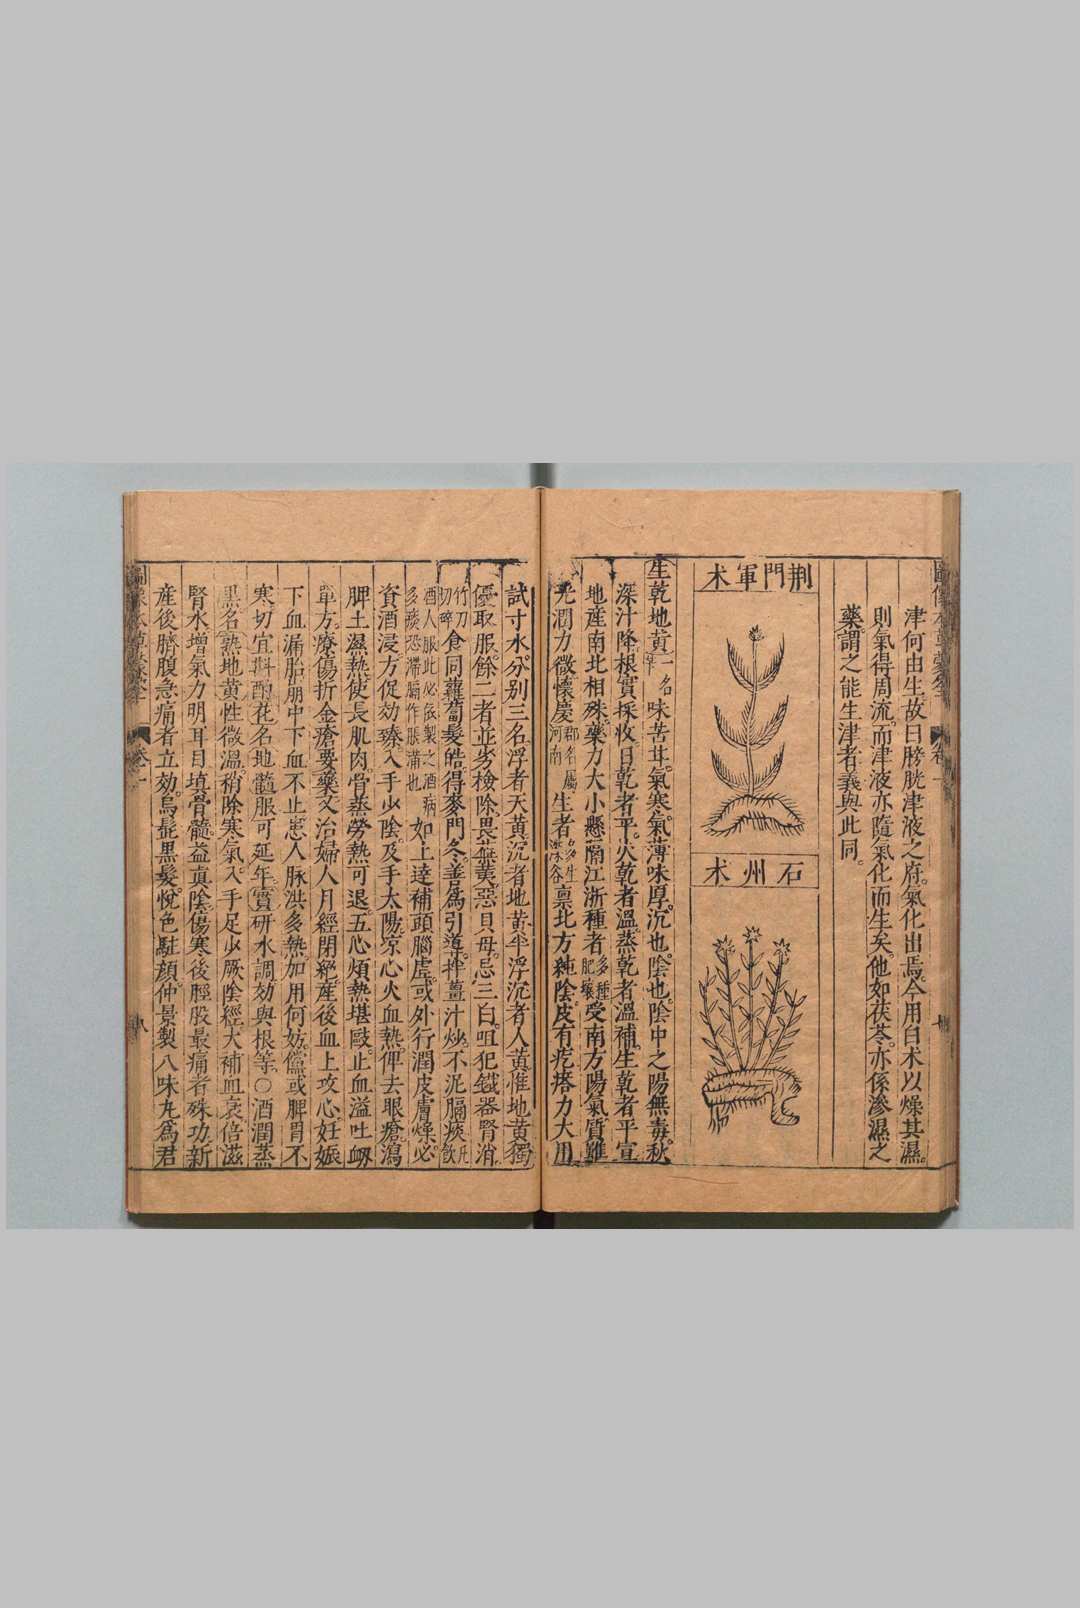 津何由生故曰膀胱津液之府氣化出焉今用白术以燥其濕
則氣得周流而津液亦隨氣化而生矣他如茯苓亦係滲濕之
藥謂之能生津者義與此同
荆門軍术
石州术
生乾地黄一名
味苦甘氣寒氣薄味厚沉也陰也陰中之陽無毒秋
深汁降根實採收日乾者平火乾者溫蒸乾者溫補生乾者平宣
地産南北相殊藥力大小懸隔江浙種者多種肥壤受南方陽氣質雖
光潤力微懷慶郡名屬河南生者多生深谷禀北方純陰皮有疙瘩力大用
試寸水分别三名浮者天黄沉者地黄半浮沉者人黄惟地黄獨
優取服餘二者並劣檢除畏蕪荑惡貝母忌三白咀犯鐵器腎消
竹刀切碎食同蘿蔔髮皓得麥門冬善爲引導拌薑汁炒不泥膈痰凡飲
酒人服此必依製之酒病多痰恐滯膈作脹滿也如上達補頭腦虛或外行潤皮膚燥必
資酒浸方促効臻入手少陰及手太陽凉心火血熱俾去眼瘡瀉
脾土濕熱使長肌肉骨蒸勞熱可退五心煩熱堪敺止血溢吐衂
單方療傷折金瘡要藥又治婦人月經閉絶産後血上攻心妊娠
下血漏胎崩中下血不止患人脉洪多熱加用何妨儻或脾胃不
寒切宜斟酌花名地髓服可延年實研水調効與根等○酒潤蒸
黑名熟地黄性微溫稍除寒氣入手足少厥陰經大補血衰倍滋
腎水增氣力明耳目填骨髓益真陰傷寒後脛股最痛者殊功新
産後臍腹急痛者立効烏髭黑髮悅色駐顔仲景製八味丸爲君
卷一
八